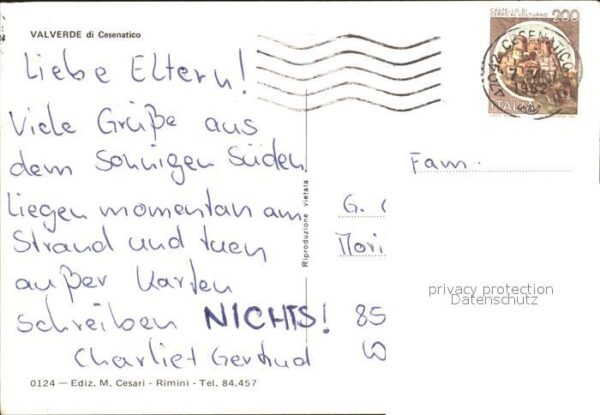 VALVERDE di Cesenatico
CASTELLO DI
CERRO AL VOLTURNO 200
CESENATICO
1982
ITALIA
Liebe Eltern!
Viele Grüße aus
dem Sonnigen Süden
Liegen momentan am
Strand und tuen
außer Karten
schreiben NICHTS!
Charliet Gertrud
Riproduzione vietata
Fam.
G.
Mori
privacy protection
Datenschutz
85
W
0124 — Ediz. M. Cesari - Rimini - Tel. 84.457